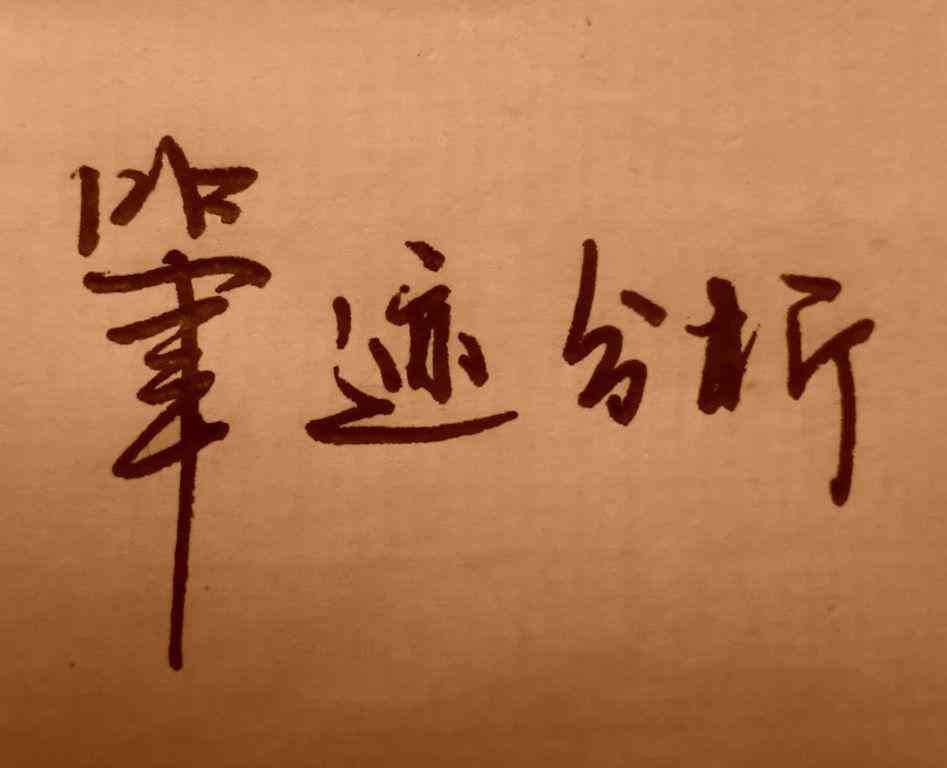 筆迹分析